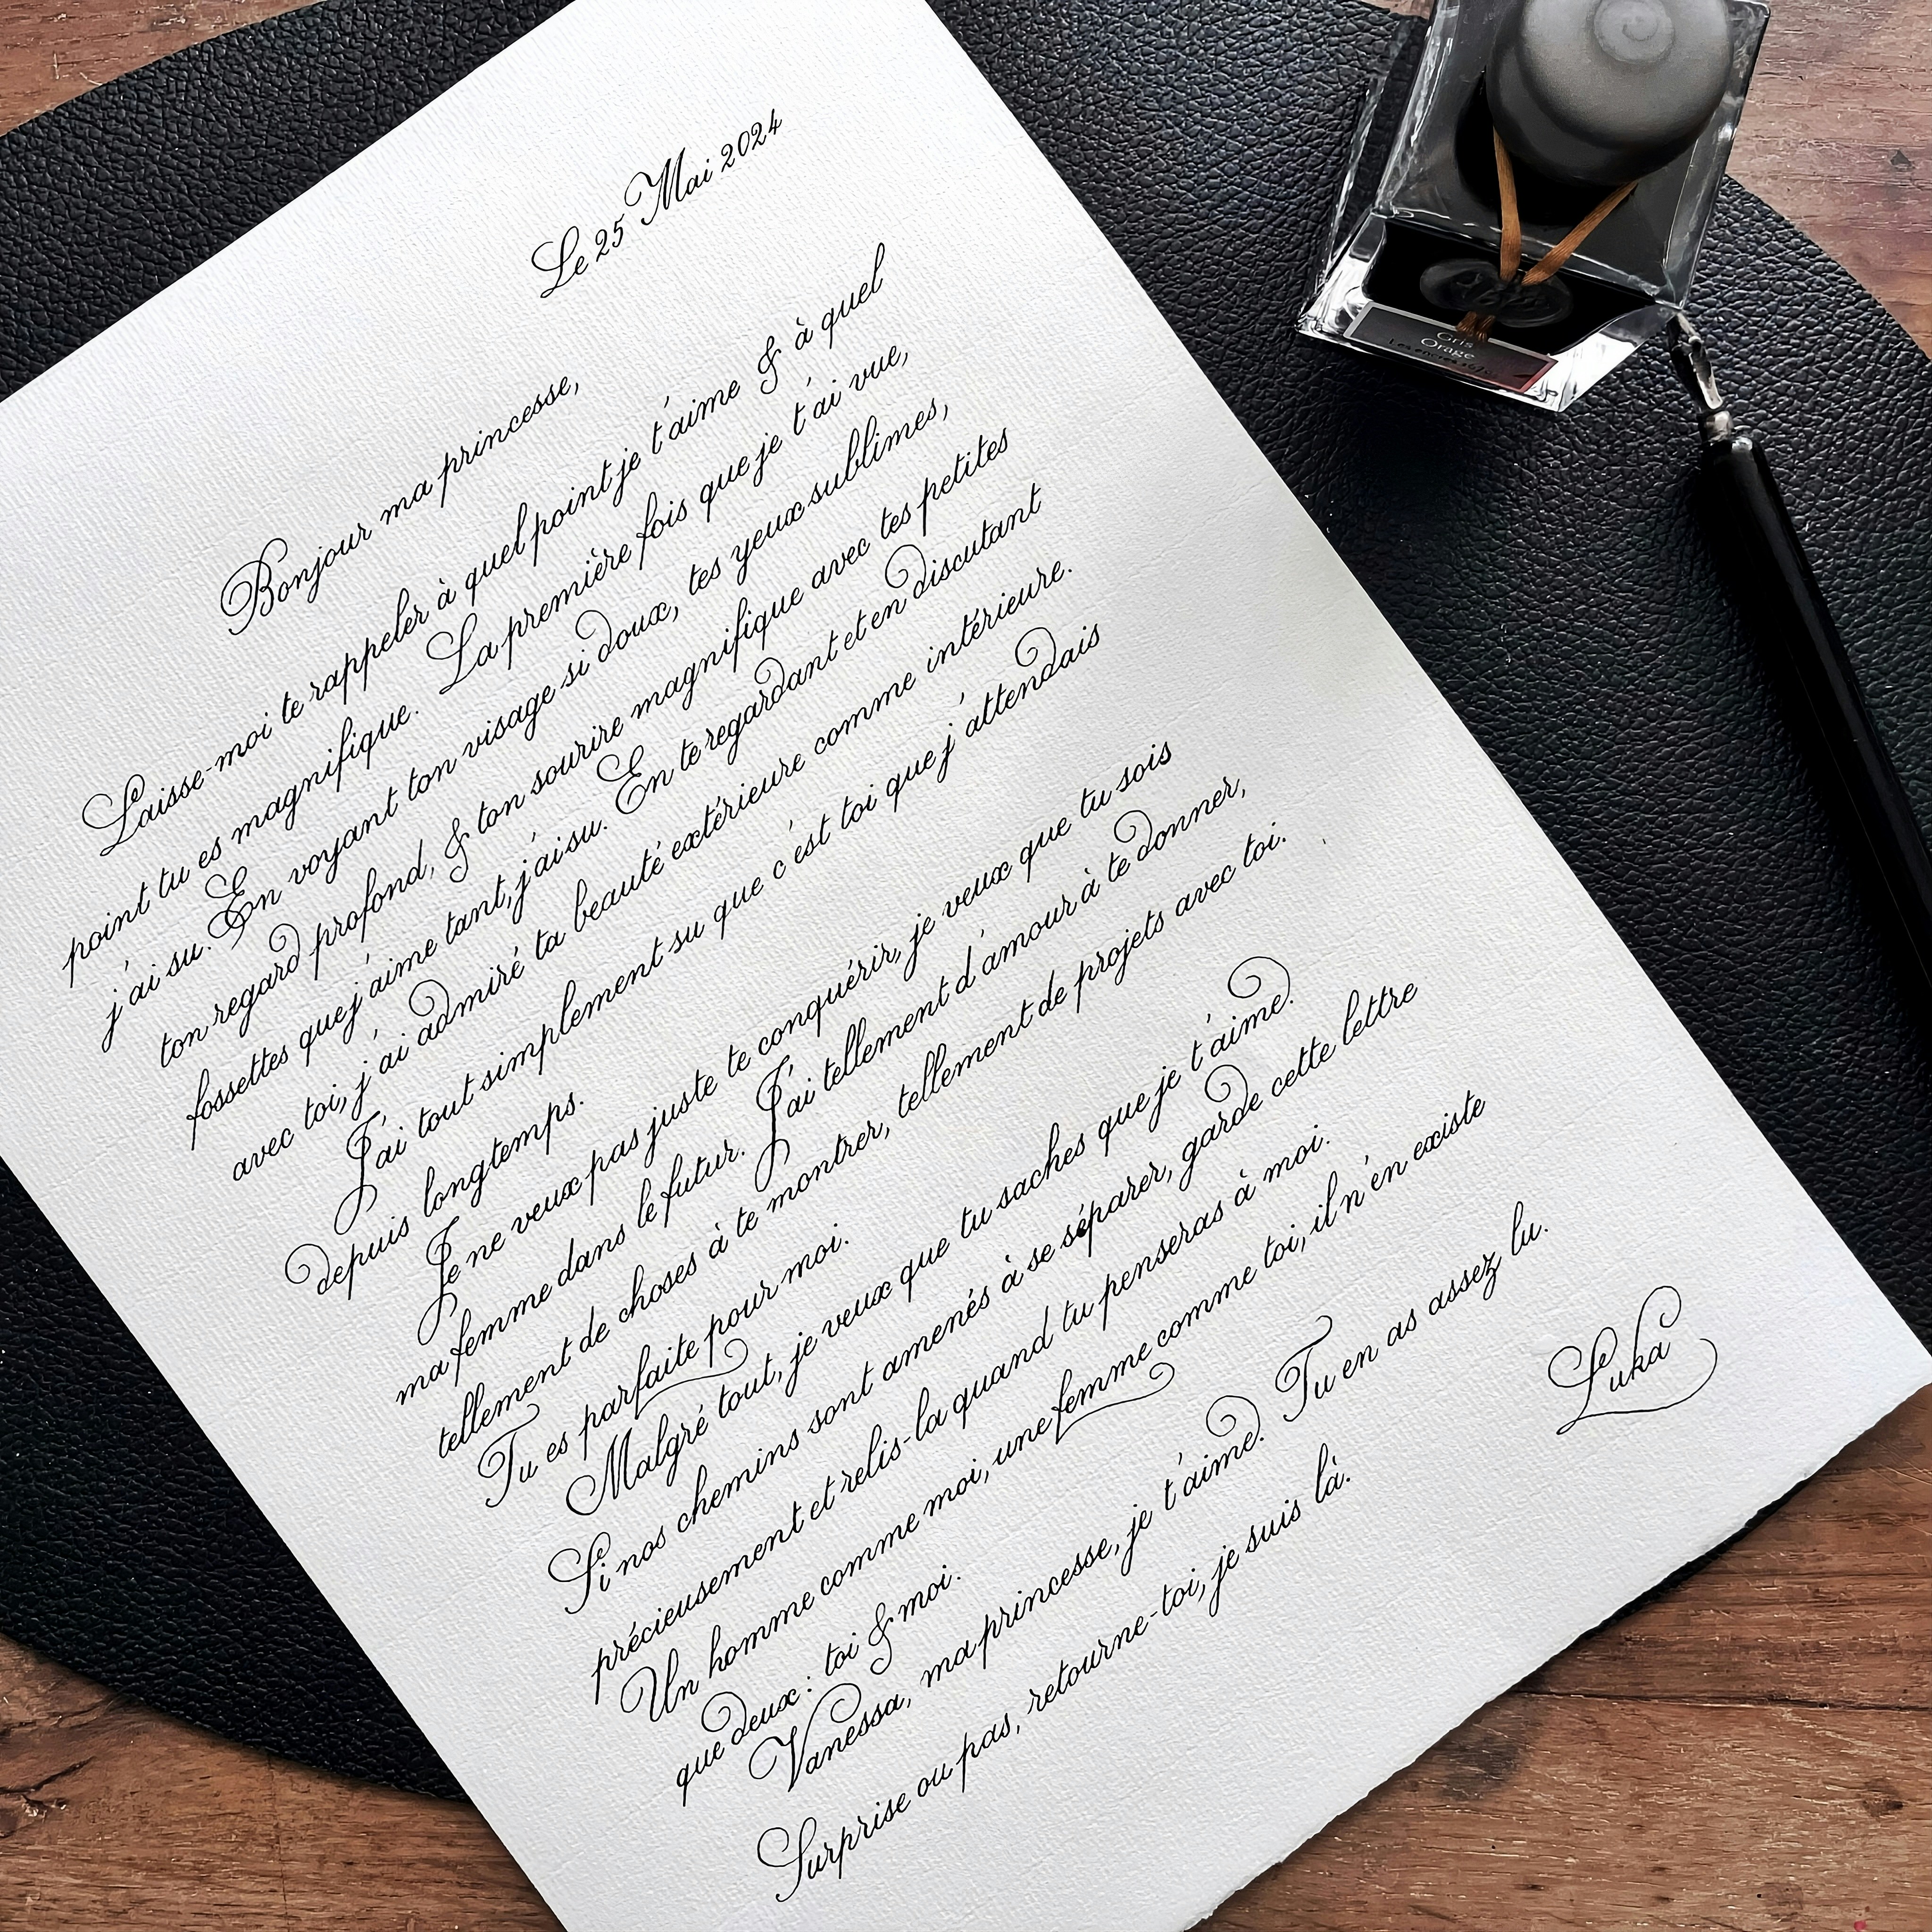 Le 25 Mai 2024
Bonjour ma princesse,
Laisse-moi te rappeler à quel point je t'aime & à quel
point tu es magnifique. La première fois que je t'ai vue,
j'ai su. En voyant ton visage si doux, tes yeux sublimes,
ton regard profond, & ton sourire magnifique avec tes petites
fossettes que j'aime tant, j'ai su. En te regardant et en discutant
avec toi, j'ai admiré ta beauté extérieure comme intérieure.
J'ai tout simplement su que c'est toi que j'attendais
depuis longtemps.
Je ne veux pas juste te conquérir, je veux que tu sois
ma femme dans le futur. J'ai tellement d'amour à te donner,
tellement de choses à te montrer, tellement de projets avec toi.
Tu es parfaite pour moi.
Malgré tout, je veux que tu saches que je t'aime.
Si nos chemins sont amenés à se séparer, garde cette lettre
précieusement et relis-la quand tu penseras à moi.
Un homme comme moi, une femme comme toi, il n'en existe
que deux : toi & moi.
Vanessa, ma princesse, je t'aime. Tu en as assez lu.
Surprise ou pas, retourne-toi, je suis là.
Luka
Gris
Orage